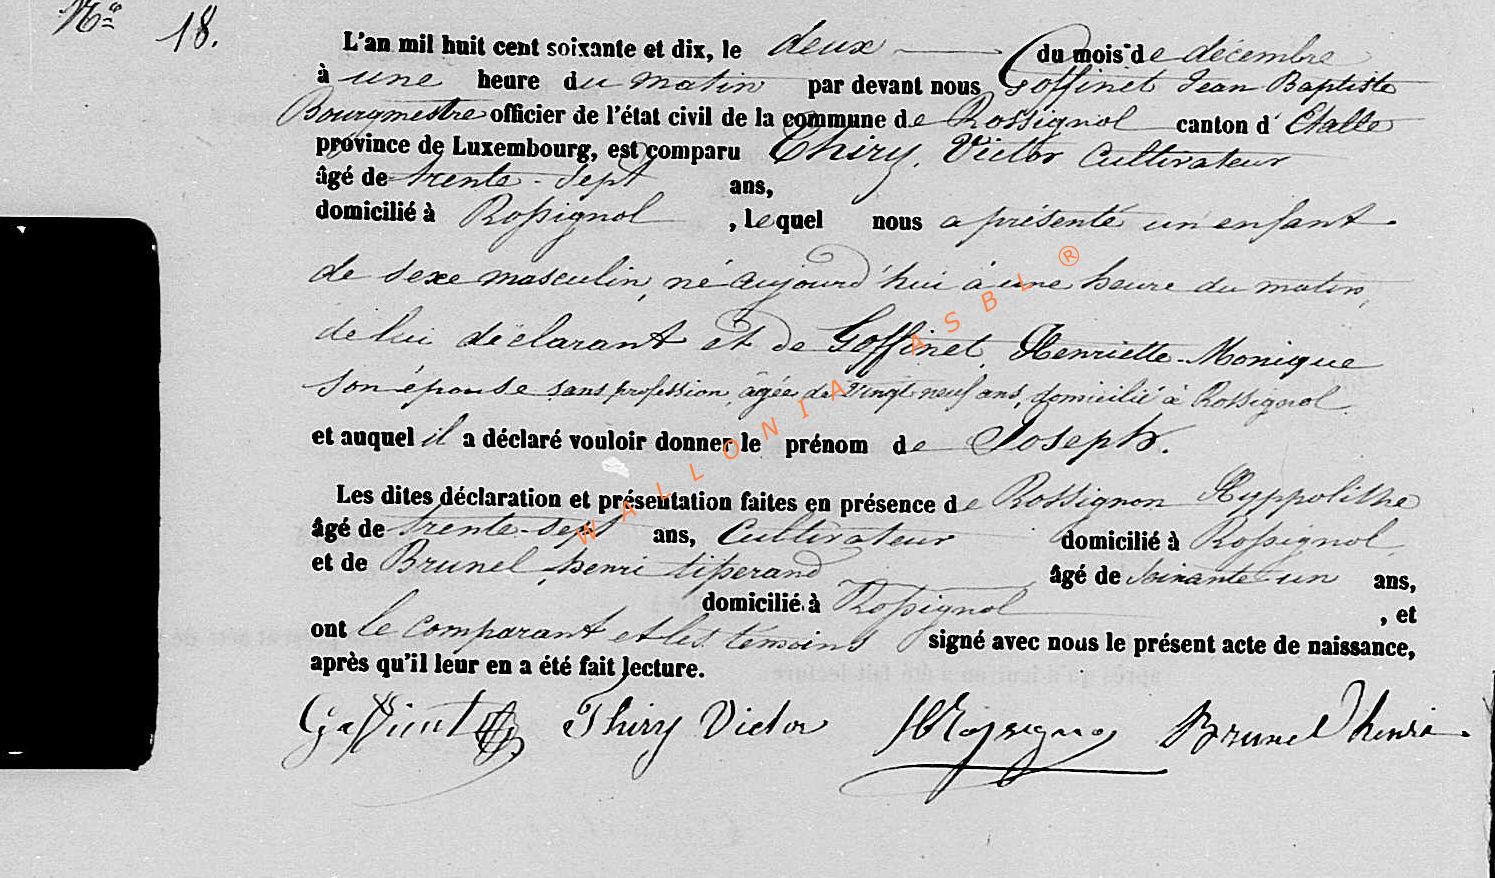 Nº 18.
L'an mil huit cent soixante et dix, le deux du mois de décembre
à une heure du matin par devant nous Goffinet Jean Baptiste
Bourgmestre officier de l'état civil de la commune de Rossignol canton d' Etalle
province de Luxembourg, est comparu Thiry, Victor Cultivateur
âgé de trente-sept ans,
domicilié à Rossignol , lequel nous a présenté un enfant
de sexe masculin, né aujourd'hui à une heure du matin,
de lui déclarant et de Goffinet, Henriette-Monique
son épouse sans profession, âgée de vingt neuf ans, domicilié à Rossignol.
et auquel il a déclaré vouloir donner le prénom de Joseph.
Les dites déclaration et présentation faites en présence de Rossignon Hyppolithe
âgé de trente-sept ans, Cultivateur domicilié à Rossignol,
et de Brunel, henri âgé de soixante un ans,
domicilié à Rossignol , et
ont le comparant et les témoins signé avec nous le présent acte de naissance,
après qu'il leur en a été fait lecture.
Goffinet Thiry Victor HRossignon Brunel henri
WALLONIA ASBL ®